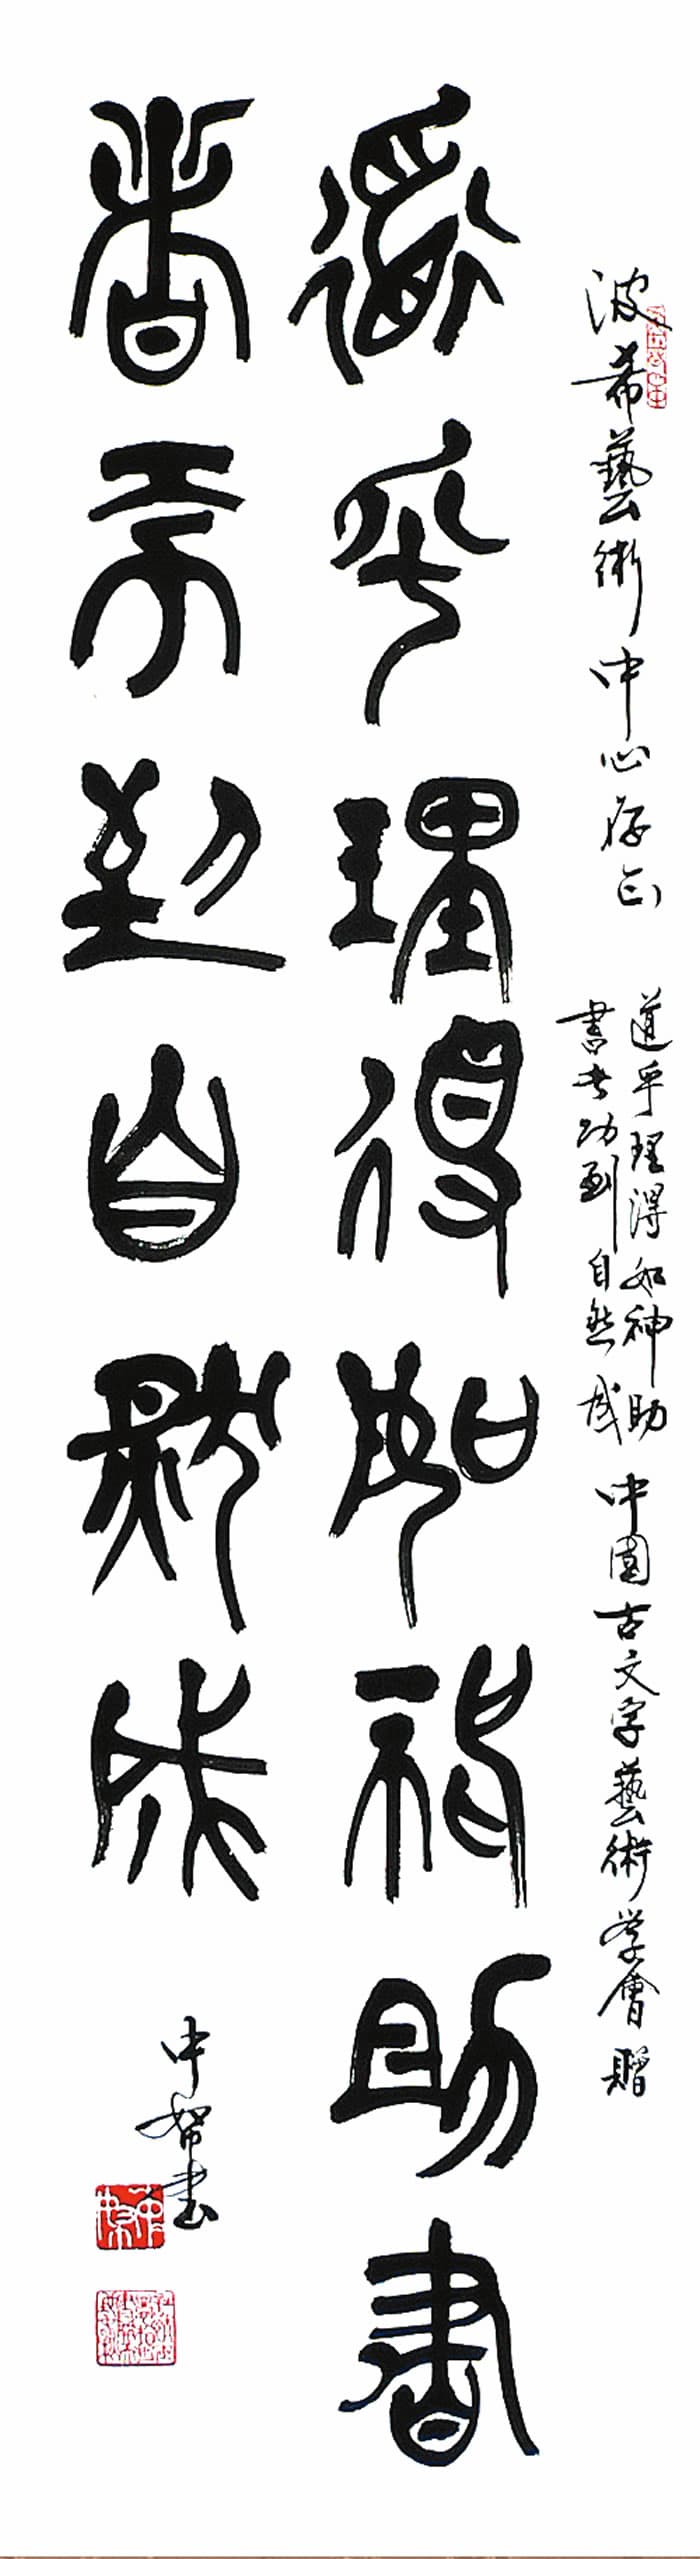 波希藝術中心存正
道乎理得如神助
書者功到自然成
中國古文字藝術学會贈
道乎理得如神助書
者功到自然成
中 書